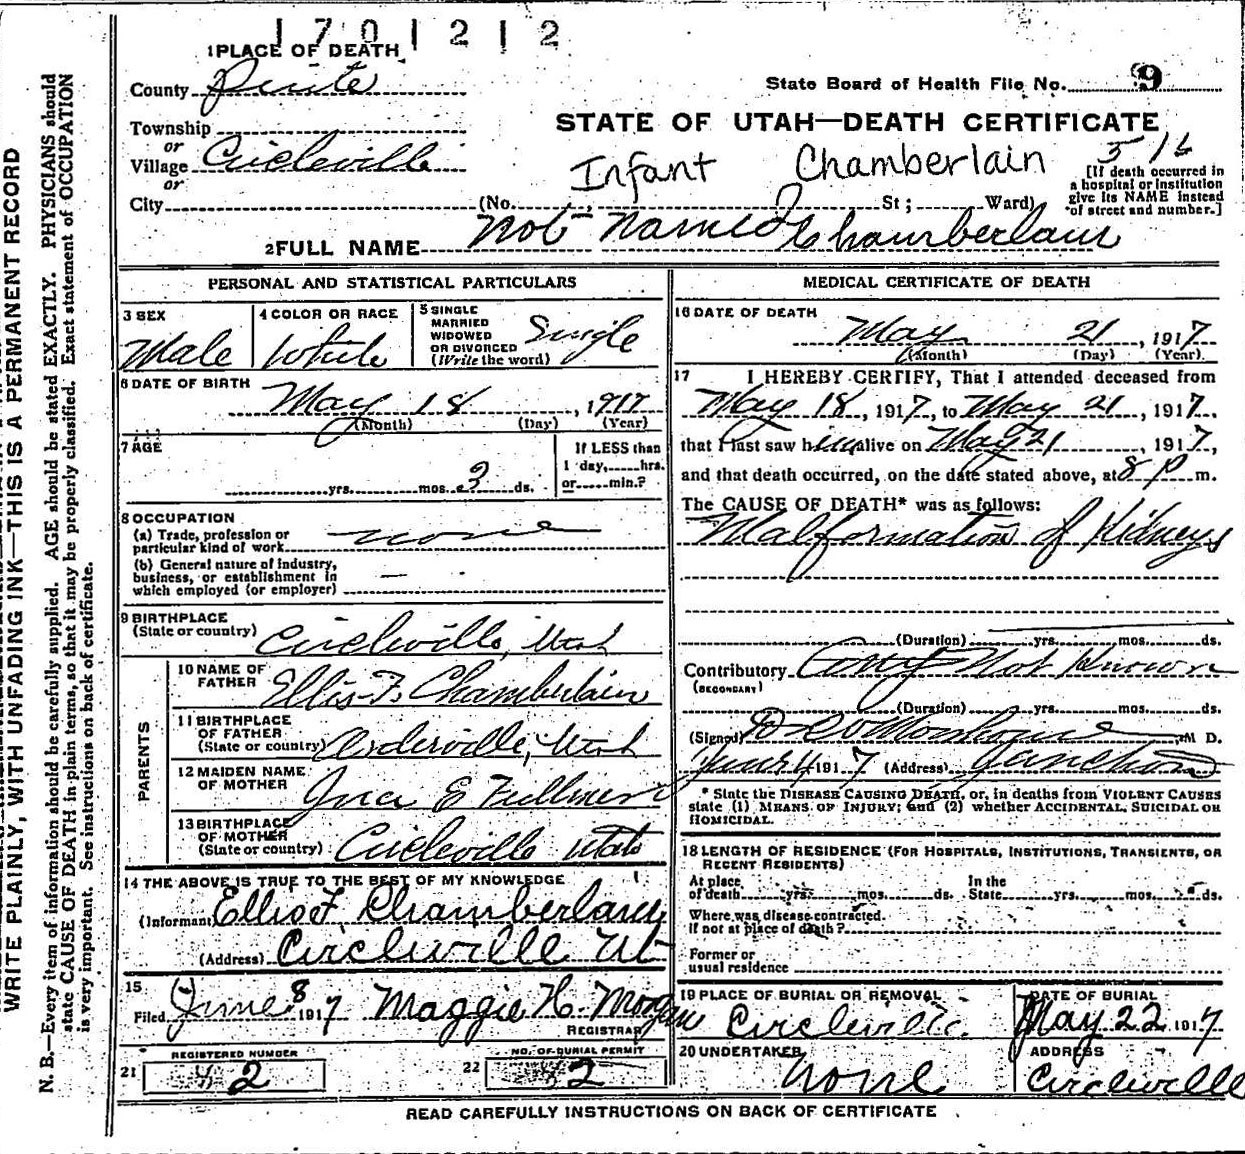 1701212
1 PLACE OF DEATH
County Piute
State Board of Health File No. 9
Township
or
Village Circleville
or
City
STATE OF UTAH—DEATH CERTIFICATE
Infant Chamberlain
[If death occurred in a hospital or institution give its NAME instead of street and number.]
(No. St; Ward)
2 FULL NAME Not Named Chamberlain
PERSONAL AND STATISTICAL PARTICULARS
3 SEX
Male
4 COLOR OR RACE
White
5 SINGLE MARRIED WIDOWED OR DIVORCED (Write the word) Single
6 DATE OF BIRTH
May 18, 1917
(Month) (Day) (Year)
7 AGE
yrs. mos. 3 ds.
If LESS than 1 day, hrs. or min.?
8 OCCUPATION
(a) Trade, profession or particular kind of work none
(b) General nature of industry, business, or establishment in which employed (or employer) —
9 BIRTHPLACE
(State or country) Circleville, Utah
PARENTS
10 NAME OF FATHER Ellis F. Chamberlain
11 BIRTHPLACE OF FATHER (State or country) Orderville, Utah
12 MAIDEN NAME OF MOTHER E Fullmer
13 BIRTHPLACE OF MOTHER (State or country) Circleville Utah
14 THE ABOVE IS TRUE TO THE BEST OF MY KNOWLEDGE
(Informant) Ellis F Chamberlain
(Address) Circleville Ut
15
Filed June 8 1917 Maggie H. Morgan
REGISTRAR
21 REGISTERED NUMBER
2
22 NO. OF BURIAL PERMIT
2
MEDICAL CERTIFICATE OF DEATH
16 DATE OF DEATH
May 21, 1917
(Month) (Day) (Year)
17 I HEREBY CERTIFY, That I attended deceased from
May 18, 1917, to May 21, 1917.,
that I last saw him alive on May 21, 1917,
and that death occurred, on the date stated above, at 8 p m.
The CAUSE OF DEATH* was as follows:
Malformation of Kidneys
(Duration) yrs. mos. ds.
Contributory Not Known
(SECONDARY)
(Duration) yrs. mos. ds.
(Signed) M D.
June 4 1917 (Address) Junction
* State the DISEASE CAUSING DEATH, or, in deaths from VIOLENT CAUSES state (1) MEANS OF INJURY; and (2) whether ACCIDENTAL, SUICIDAL OR HOMICIDAL.
18 LENGTH OF RESIDENCE (FOR HOSPITALS, INSTITUTIONS, TRANSIENTS, OR RECENT RESIDENTS)
At place of death yrs. mos. ds. In the State yrs. mos. ds.
Where was disease contracted.
If not at place of death?
Former or usual residence
19 PLACE OF BURIAL OR REMOVAL
Circleville
DATE OF BURIAL
May 22 1917
20 UNDERTAKER
None
ADDRESS
Circleville
READ CAREFULLY INSTRUCTIONS ON BACK OF CERTIFICATE
WRITE PLAINLY, WITH UNFADING INK—THIS IS A PERMANENT RECORD
N. B.—Every item of information should be carefully supplied. AGE should be stated EXACTLY. PHYSICIANS should
state CAUSE OF DEATH in plain terms, so that it may be properly classified. Exact statement of OCCUPATION
is very important. See instructions on back of certificate.